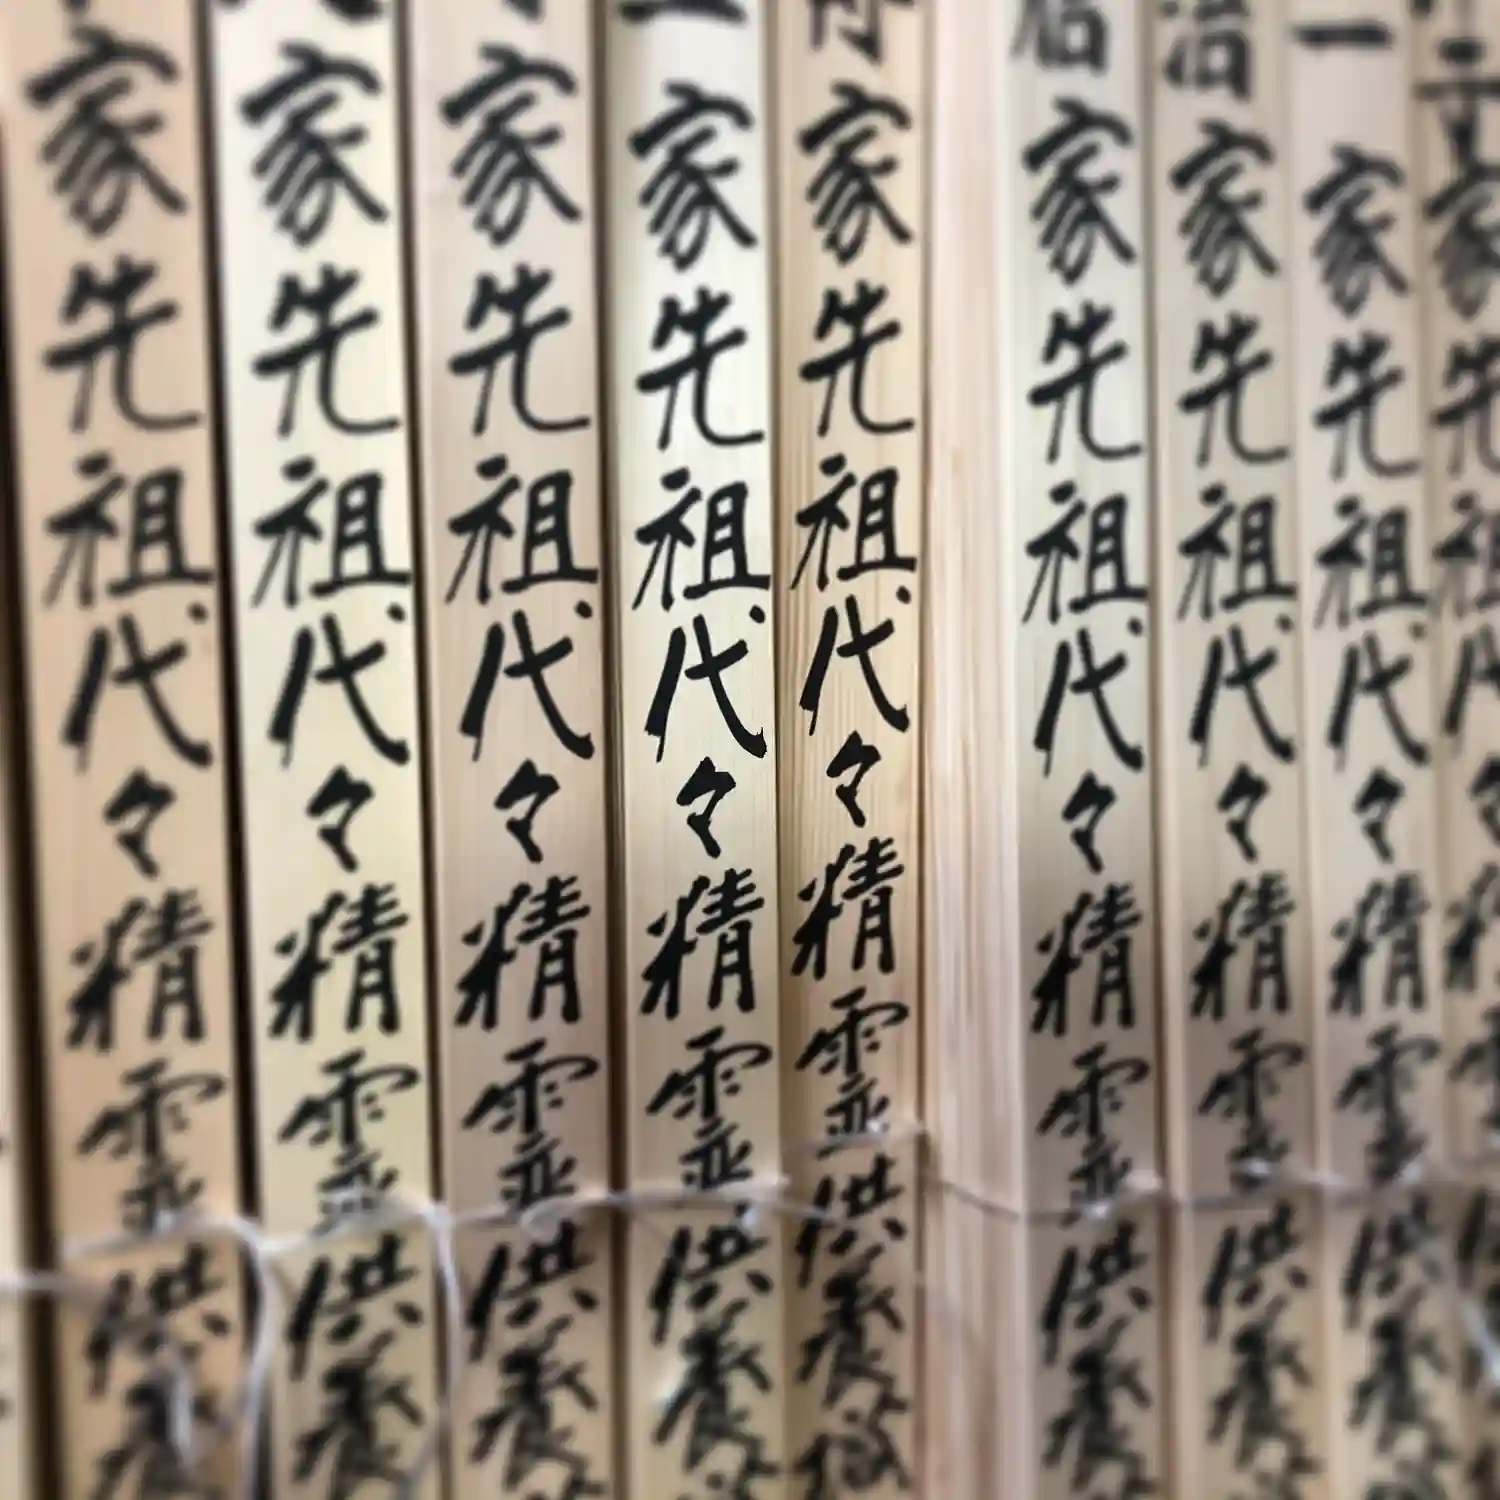 家先祖代々精
一家先祖代々精霊供養
治家先祖代々精霊供養
家先祖代々精霊供養
家先祖代々精霊供養
家先祖代々精霊供養
家先祖代々精霊供養
家先祖代々精霊供養
家先祖代々精霊供養